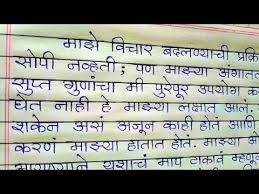 माझे विचार बदलण्याची प्रक्रि
सोपी नव्हती; पण माझ्या अंगात
सुप्त गुणांचा मी पुरेपूर उपयोग कर
घेत नाही हे माझ्या लक्षात आलं.
शकेन असं अजून काही होतं आणि
करणं माझ्या हातात होतं. माझ्या
यशाचं माप टाकावं म्हणून